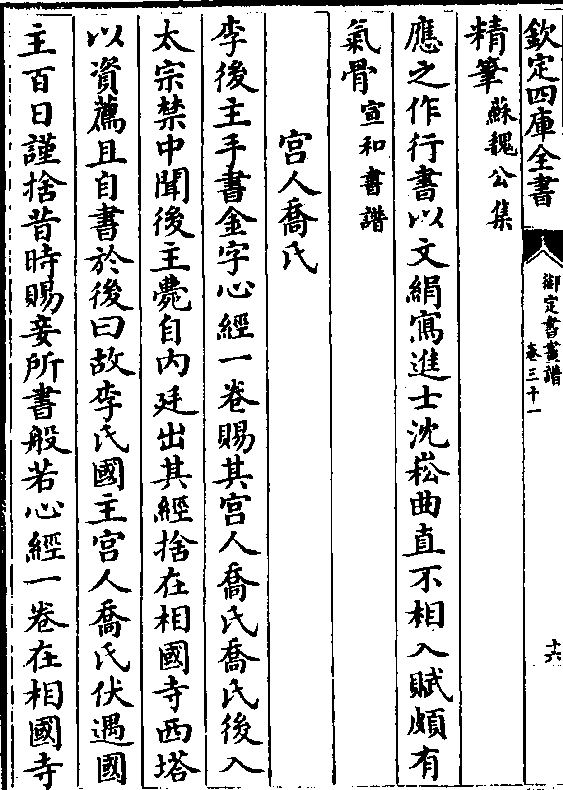 欽定四庫全書
御定書畫譜
卷三十一
十六
精筆蘇魏公集
應之作行書以文絹寫進士沈崧曲直不相入賦頗有
氣骨宣和書譜
宮人喬氏
李後主手書金字心經一卷賜其宮人喬氏喬氏後入
太宗禁中聞後主薨自內廷出其經捨在相國寺西塔
以資薦且自書於後曰故李氏國主宮人喬氏伏遇國
主百日謹捨昔時賜妾所書般若心經一卷在相國寺